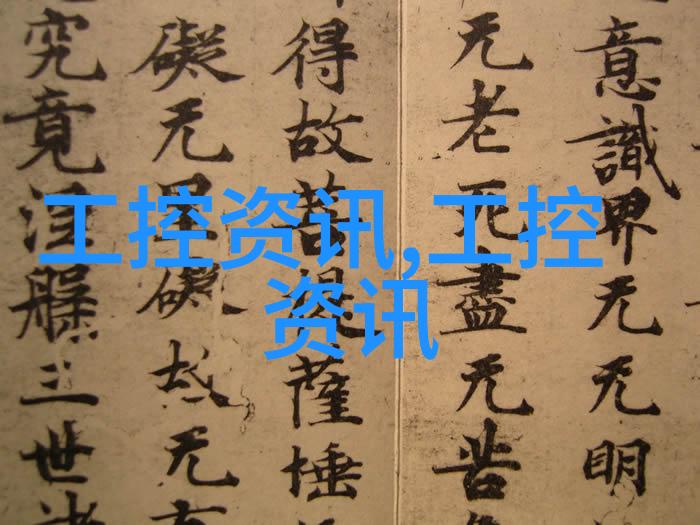 工控资讯,工控
资讯
意識界无无明
无老死盡无苦
得故菩提薩埵
礙无罣礙故无有
究竟涅槃三世諸